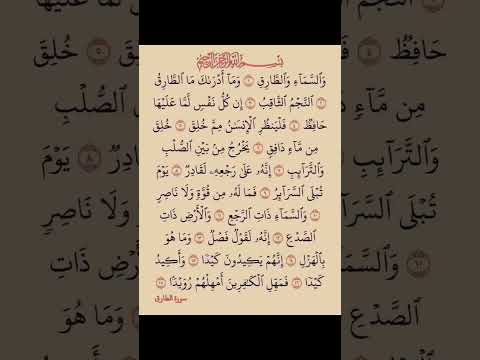 بِسْمِ ٱللَّهِ ٱلرَّحْمَٰنِ ٱلرَّحِيمِ
وَٱلسَّمَآءِ وَٱلطَّارِقِ ١ وَمَآ أَدْرَىٰكَ مَا ٱلطَّارِقُ
٢ ٱلنَّجْمُ ٱلثَّاقِبُ ٣ إِن كُلُّ نَفْسٍ لَّمَّا عَلَيْهَا
حَافِظٌ ٤ فَلْيَنظُرِ ٱلْإِنسَٰنُ مِمَّ خُلِقَ ٥ خُلِقَ
مِن مَّآءٍ دَافِقٍ ٦ يَخْرُجُ مِنۢ بَيْنِ ٱلصُّلْبِ
وَٱلتَّرَآئِبِ ٧ إِنَّهُۥ عَلَىٰ رَجْعِهِۦ لَقَادِرٌ ٨ يَوْمَ
تُبْلَى ٱلسَّرَآئِرُ ٩ فَمَا لَهُۥ مِن قُوَّةٍ وَلَا نَاصِرٍ
١٠ وَٱلسَّمَآءِ ذَاتِ ٱلرَّجْعِ ١١ وَٱلْأَرْضِ ذَاتِ
ٱلصَّدْعِ ١٢ إِنَّهُۥ لَقَوْلٌ فَصْلٌ ١٣ وَمَا هُوَ
بِٱلْهَزْلِ ١٤ إِنَّهُمْ يَكِيدُونَ كَيْدًا ١٥ وَأَكِيدُ
كَيْدًا ١٦ فَمَهِّلِ ٱلْكَٰفِرِينَ أَمْهِلْهُمْ رُوَيْدًۢا ١٧
سورة الطارق